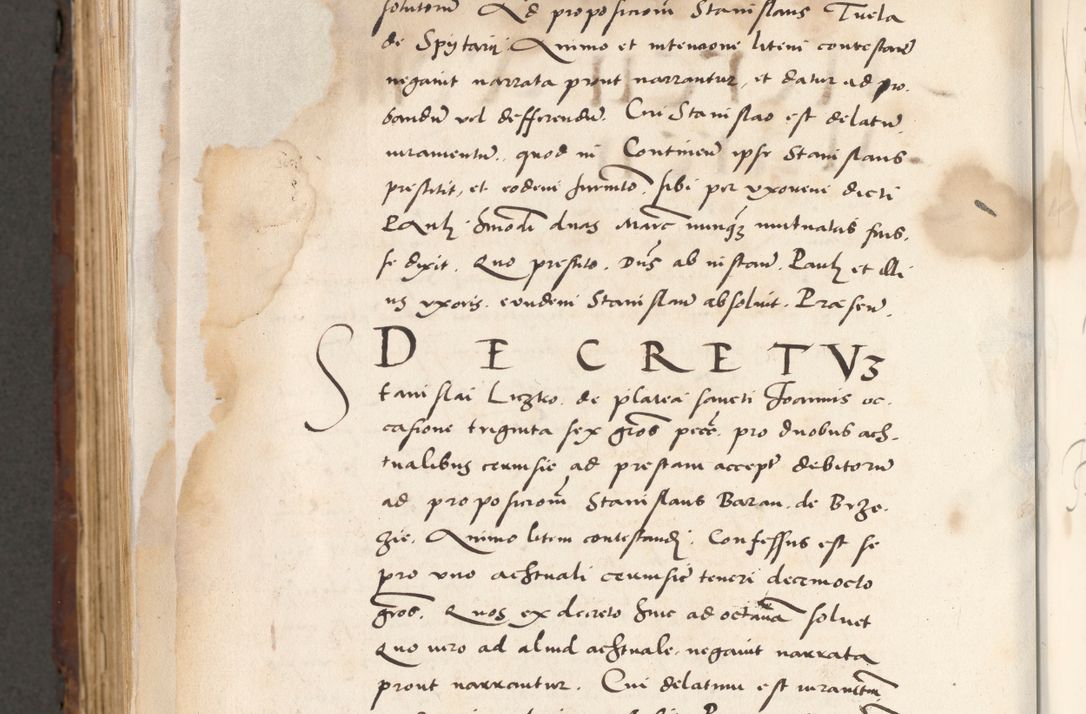 solutorum Ad proposicionem Stanislaus Tuela
de Spytarii. Animo et intencione litem contestand
negavit narrata prout narrantur, et datur ad pro-
bandum vel defferendum. Cui Stanislao est delatum
iuramentum, quod in Continenti ipse Stanislaus
prestitit, et eodem Juramento, sibi per uxorem dicti
Pauli hmodi duas Marc nunquam mutuatas fuis-
se dixit. Quo prestito. Dns ab instan. Pauli et illi
us uxoris. eundem Stanislaum absolvit. Præsen.
DECRETUM
Stanislai Liczko. de platea sancti Joannis oc-
casione triginta sex gros pecc. pro duobus ach-
tualibus cerevisie ad prestam accept debitorum
ad proposicionem Stanislaus Baran. de Brze-
zie. Animo litem contestandi. Confessus est se
pro uno achtuali cerevisie teneri decemocto
gros. Quos ex decreto hinc ad octavam solvet
Quo vero ad aliud achtuale. negavit narrata
prout narrantur. Cui delatum est iuramentum